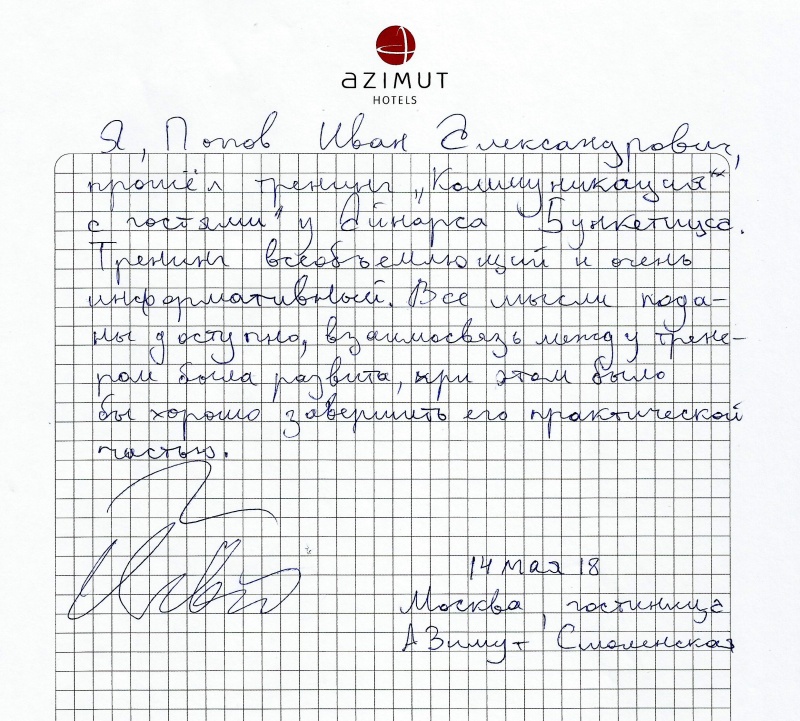 AZIMUT
HOTELS
Я, Попов Иван Александрович,
прошёл тренинг „Коммуникация"
с гостями" у Айнарса Бункетица.
Тренинг всеобъемлющий и очень
информативный. Все мысли пода-
ны доступно, взаимосвязь между трене-
ром была развита, при этом было
бы хорошо завершить его практической
частью.
14 мая 18
Москва, гостиница
АЗимут Смоленская